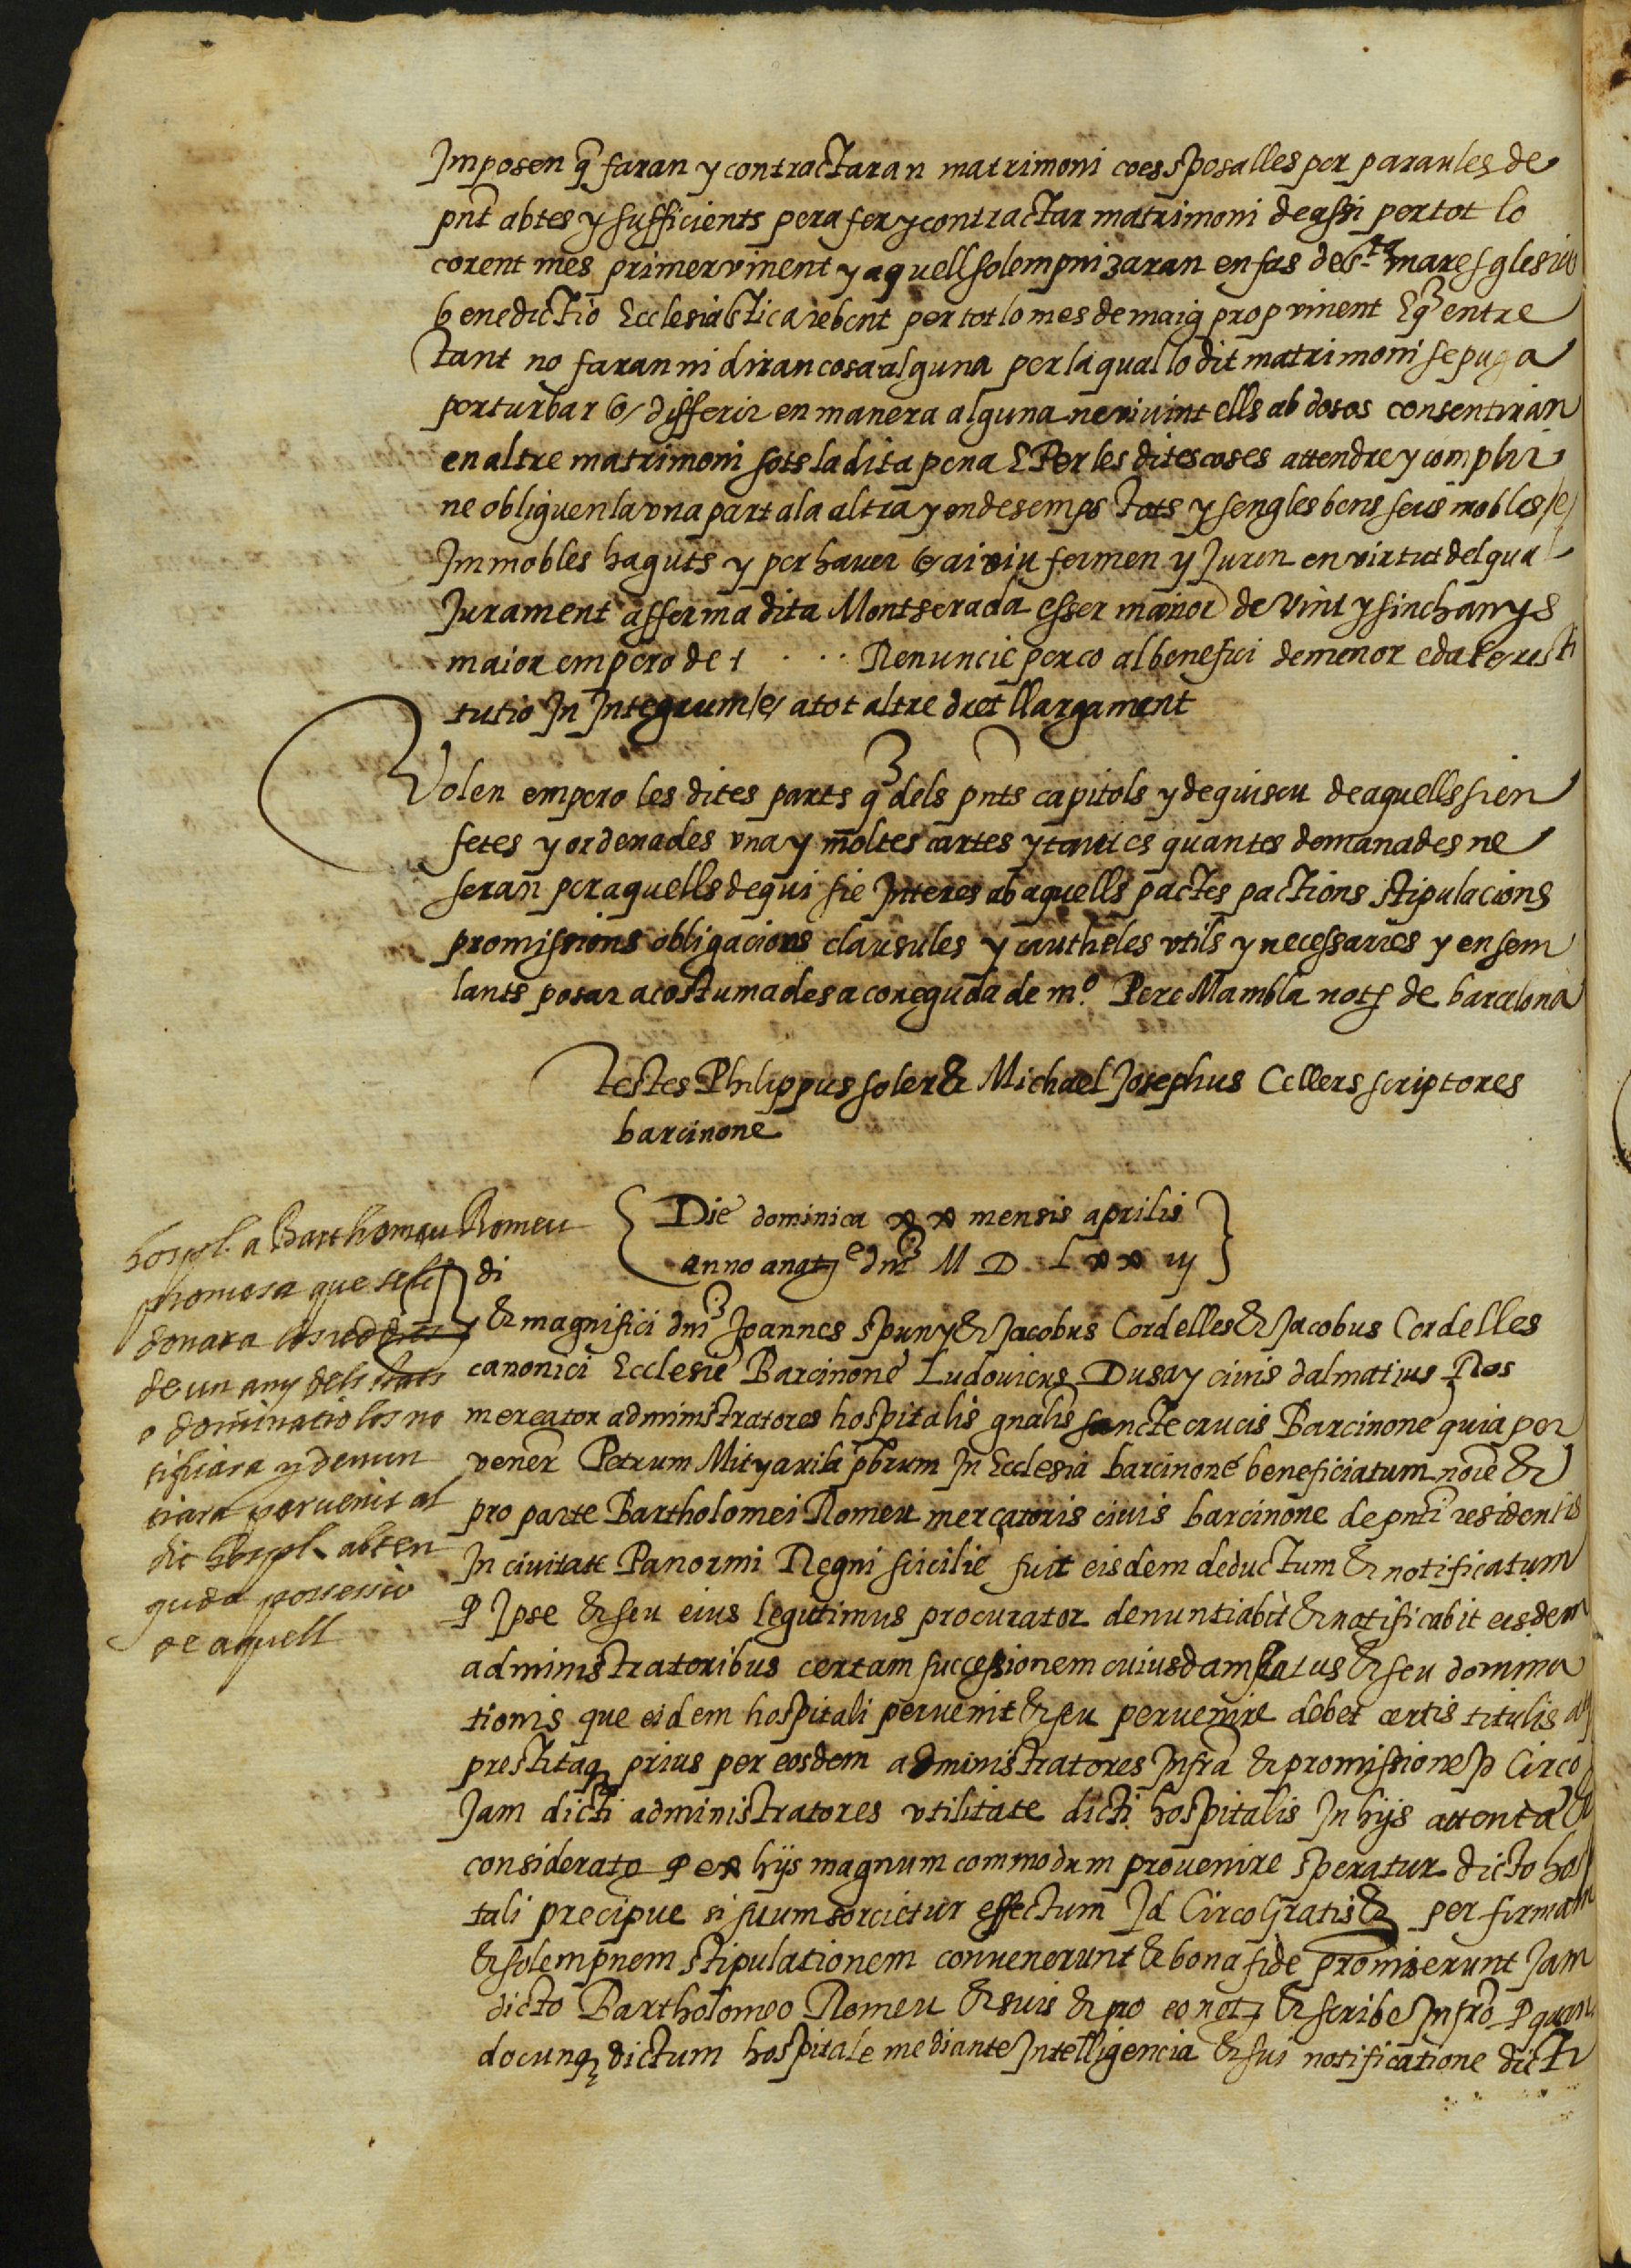 Imposen q̃ faran y contractaran matrimoni co es sposalles per paraules de
pñt abtes y sufficients pera fer y contractar matrimoni de assi per tot lo
corent mes primer vinent y aquell solempnizaran en fas de s.ta mare sglesia
benedictio Ecclesiastica rebent per tot lo mes de maig prop vinent E q̃ entre
tant no faran ni diran cosa alguna per la qual lo dit matrimoni se puga
perturbar o differir en manera alguna ne vivint ells ab dosos consentiran
en altre matrimoni sots la dita pena E Per les dites coses attendre y complir
ne obliguen la vna part a la altra y endesemps tots y sengles bens seus mobles /e/
Immobles haguts y per haver E axi ho fermen y Juren en virtut del qual
Jurament afferma dita Montserada esser mainor de vint y sinch anys
maior empero de 1 . . . Renuncie per ço al benefici de menor edat e resti
tutio In Integrum /e/ a tot altre dret llargament
Volen empero les dites parts q̃ dels pñts capitols y de quiscu de aquells sien
fetes y ordenades vna y moltes cartes y tantes quantes demanades ne
seran per aquells de qui sie Interes ab aquells pactes pactions stipulacions
promissions obligacions clausules y cautheles vtils y necessaries y en sem
lants posar acostumades a coneguda de m.º Pere Mambla not̃ de barcelona
testes Philippus soler & Michael Josephus Cellers scriptores
barcinone
Die dominica xx mensis aprilis
anno a nat̃e dñi M D L xx iij
hospl. a Barthomeu Romeu
promesa que se li
donara los reddits
de un any dels stats
o dominatio los no
tifiara y denun
ciara pervenir al
dit hospl. abten
guda possessio
de aquell
di
& magnifici dñi Joannes spuny & Jacobus Cordelles & Jacobus Cordelles
canonici Ecclesie Barcinone Ludovicus Dusay civis dalmatius Ros
mercator administratores hospitalis gñalis sancte crucis Barcinone quia per
vener̃ Petrum Mityavila pb̃rum In Ecclesia barcinone beneficiatum noĩe &
pro parte Bartholomei Romeu mercatoris civis barcinone de pñti residentis
In civitate Panormi Regni scicilie fuit eisdem deductum & notificatum
q̃ Ipse & seu eius legitimus procurator denuntiabit & notificabit eisdem
administratoribus certam successionem cuiusdam status & seu domina
tionis que eidem hospitali pervenit & seu pervenire debet certis titulis
prestitaq̃ prius per eosdem administratores Infra & promissione Id Circo
Jam dicti administratores vtilitate dicti hospitalis In hijs attenta &
considerato q̃ ex hijs magnum commodum provenire speratur dicto hosp
tali precipue si suum sorcietur effectum Id Circo Gratis & per firmam
& solempnem stipulationem convenerunt & bona fide promiserunt Jam
dicto Bartholomeo Romeu & suis & pro eo not̃ & scribe Infr̃o q̃ quan
documq̃ dictum hospitale mediante Intelligencia & sui notificatione dicti